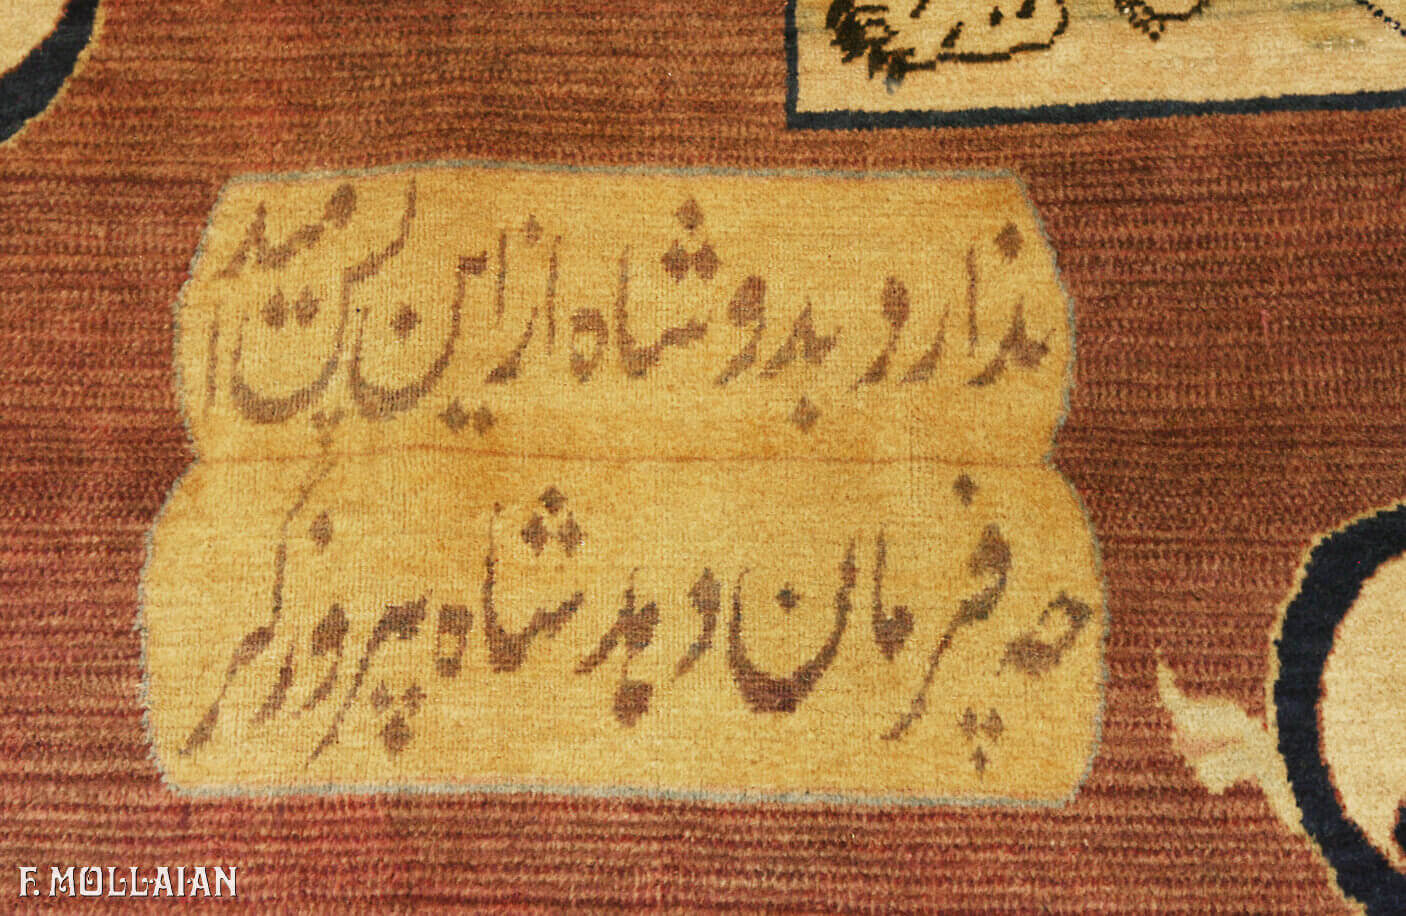 ندارد و بدو شاه ازین پس امید
چه فرمان دهد شاه پیروزگر
F. MOLLAIAN